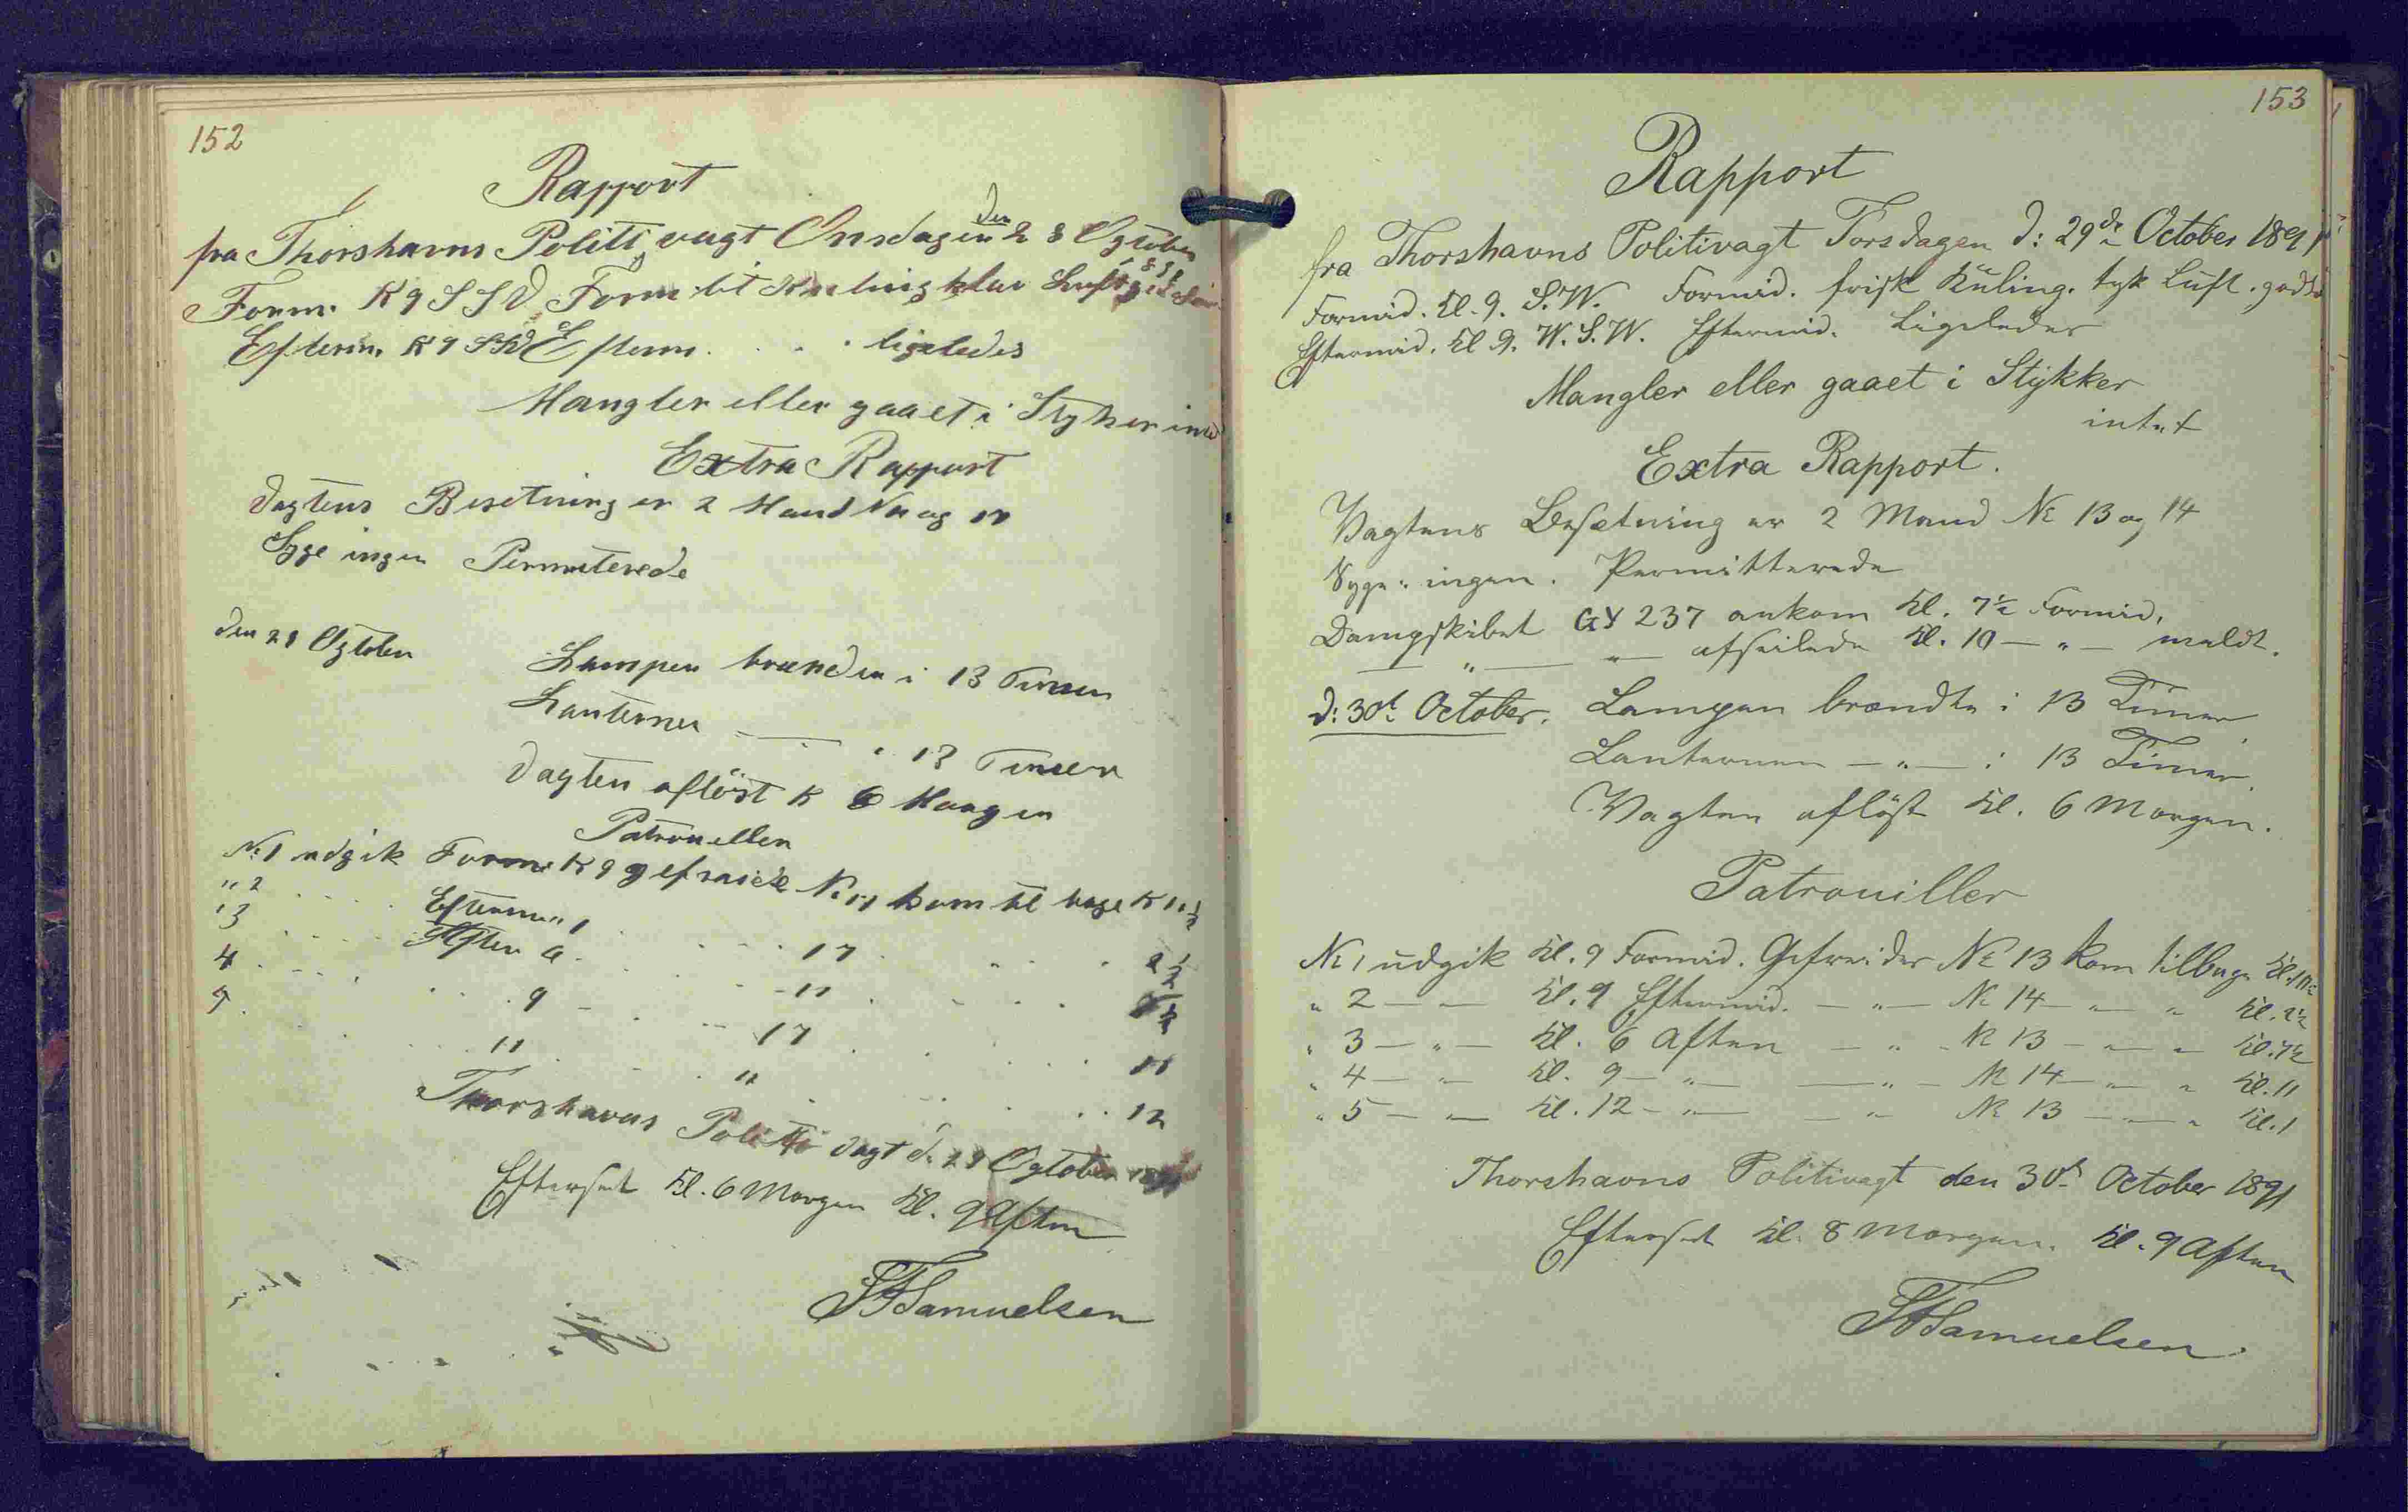 152
Rapport
fra Thorshavns Politi vagt Onsdagen den 28 Ogtober
1891
Form. K 9 S S V Form. let Kuling klar Luft
Efterm. K 9 Efterm. . . . ligeledes
Mangler eller gaaet i Stykker
Extra Rapport
Vagtens Besetning er 2 Mand No 11 og 17
Syge ingen Permiterede
den 29 Ogtober
Lampen brænder i 13 Timer
Lanternen — " — i 13 Timer
Vagten aflöst K 6 Morgen
Patrouller
No 1 udgik Form. K 9 gefraider No 11 kom til bage K 11 ½
" 2 . . . Efterm. 1 . . . 17 . . . 2 ½
" 3 . . . Aften 6 . . . 11 . . . 7 ½
4 . . . 9 . . . 17 . . . 11
5 . . . 11 . . . " . . . 12
Thorshavns Politi Vagt d. 29 Ogtober 1891
Efterset Kl. 6 Morgen Kl. 9 Aften
Samuelsen
153
Rapport
fra Thorshavns Politivagt Torsdagen d: 29de October 1891
Formid. Kl. 9. S.W. Formid. frisk Kuling. tyk Luft.
Eftermid. Kl. 9. W.S.W. Eftermid. Ligeledes
Mangler eller gaaet i Stykker
intet
Extra Rapport.
Vagtens Besætning er 2 Mand No 13 og 14
Syge " ingen. Permitterede
Dampskibet GY 237 ankom Kl. 7½ Formid.
— " — " — afseilede Kl. 10 — " — meldt.
d: 30t October. Lampen brændte i 13 Timer
Lanternen — " — i 13 Timer
Vagten aflöst Kl. 6 Morgen.
Patrouiller
No 1 udgik Kl. 9 Formid. Gefreider No 13 kom tilbage Kl. 11½
" 2 — " — Kl. 9 Eftermid. — " — No 14 — " — " Kl. 2½
" 3 — " — Kl. 6 Aften — " — No 13 — " — " Kl. 7½
" 4 — " — Kl. 9 — " — — " — No 14 — " — " Kl. 11
" 5 — " — Kl. 12 — " — — " — No 13 — " — " Kl. 1
Thorshavns Politivagt den 30t October 1891
Efterset Kl. 8 Morgen. Kl. 9 Aften
Samuelsen.